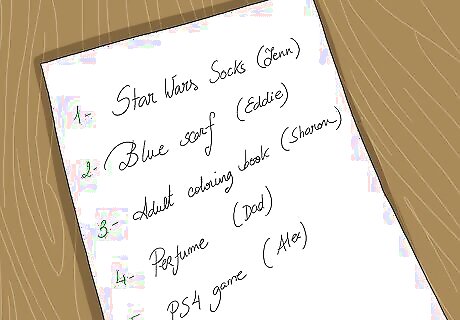 1- Star Wars Socks (Jenn)
2- Blue scarf (Eddie)
3- Adult coloring book (Sharon)
4- Perfume (Dad)
PS4 game (Alex)